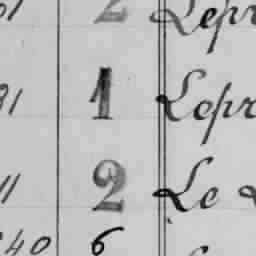 2 Lepr
31 1 Lepr
11 2 Le
40 6